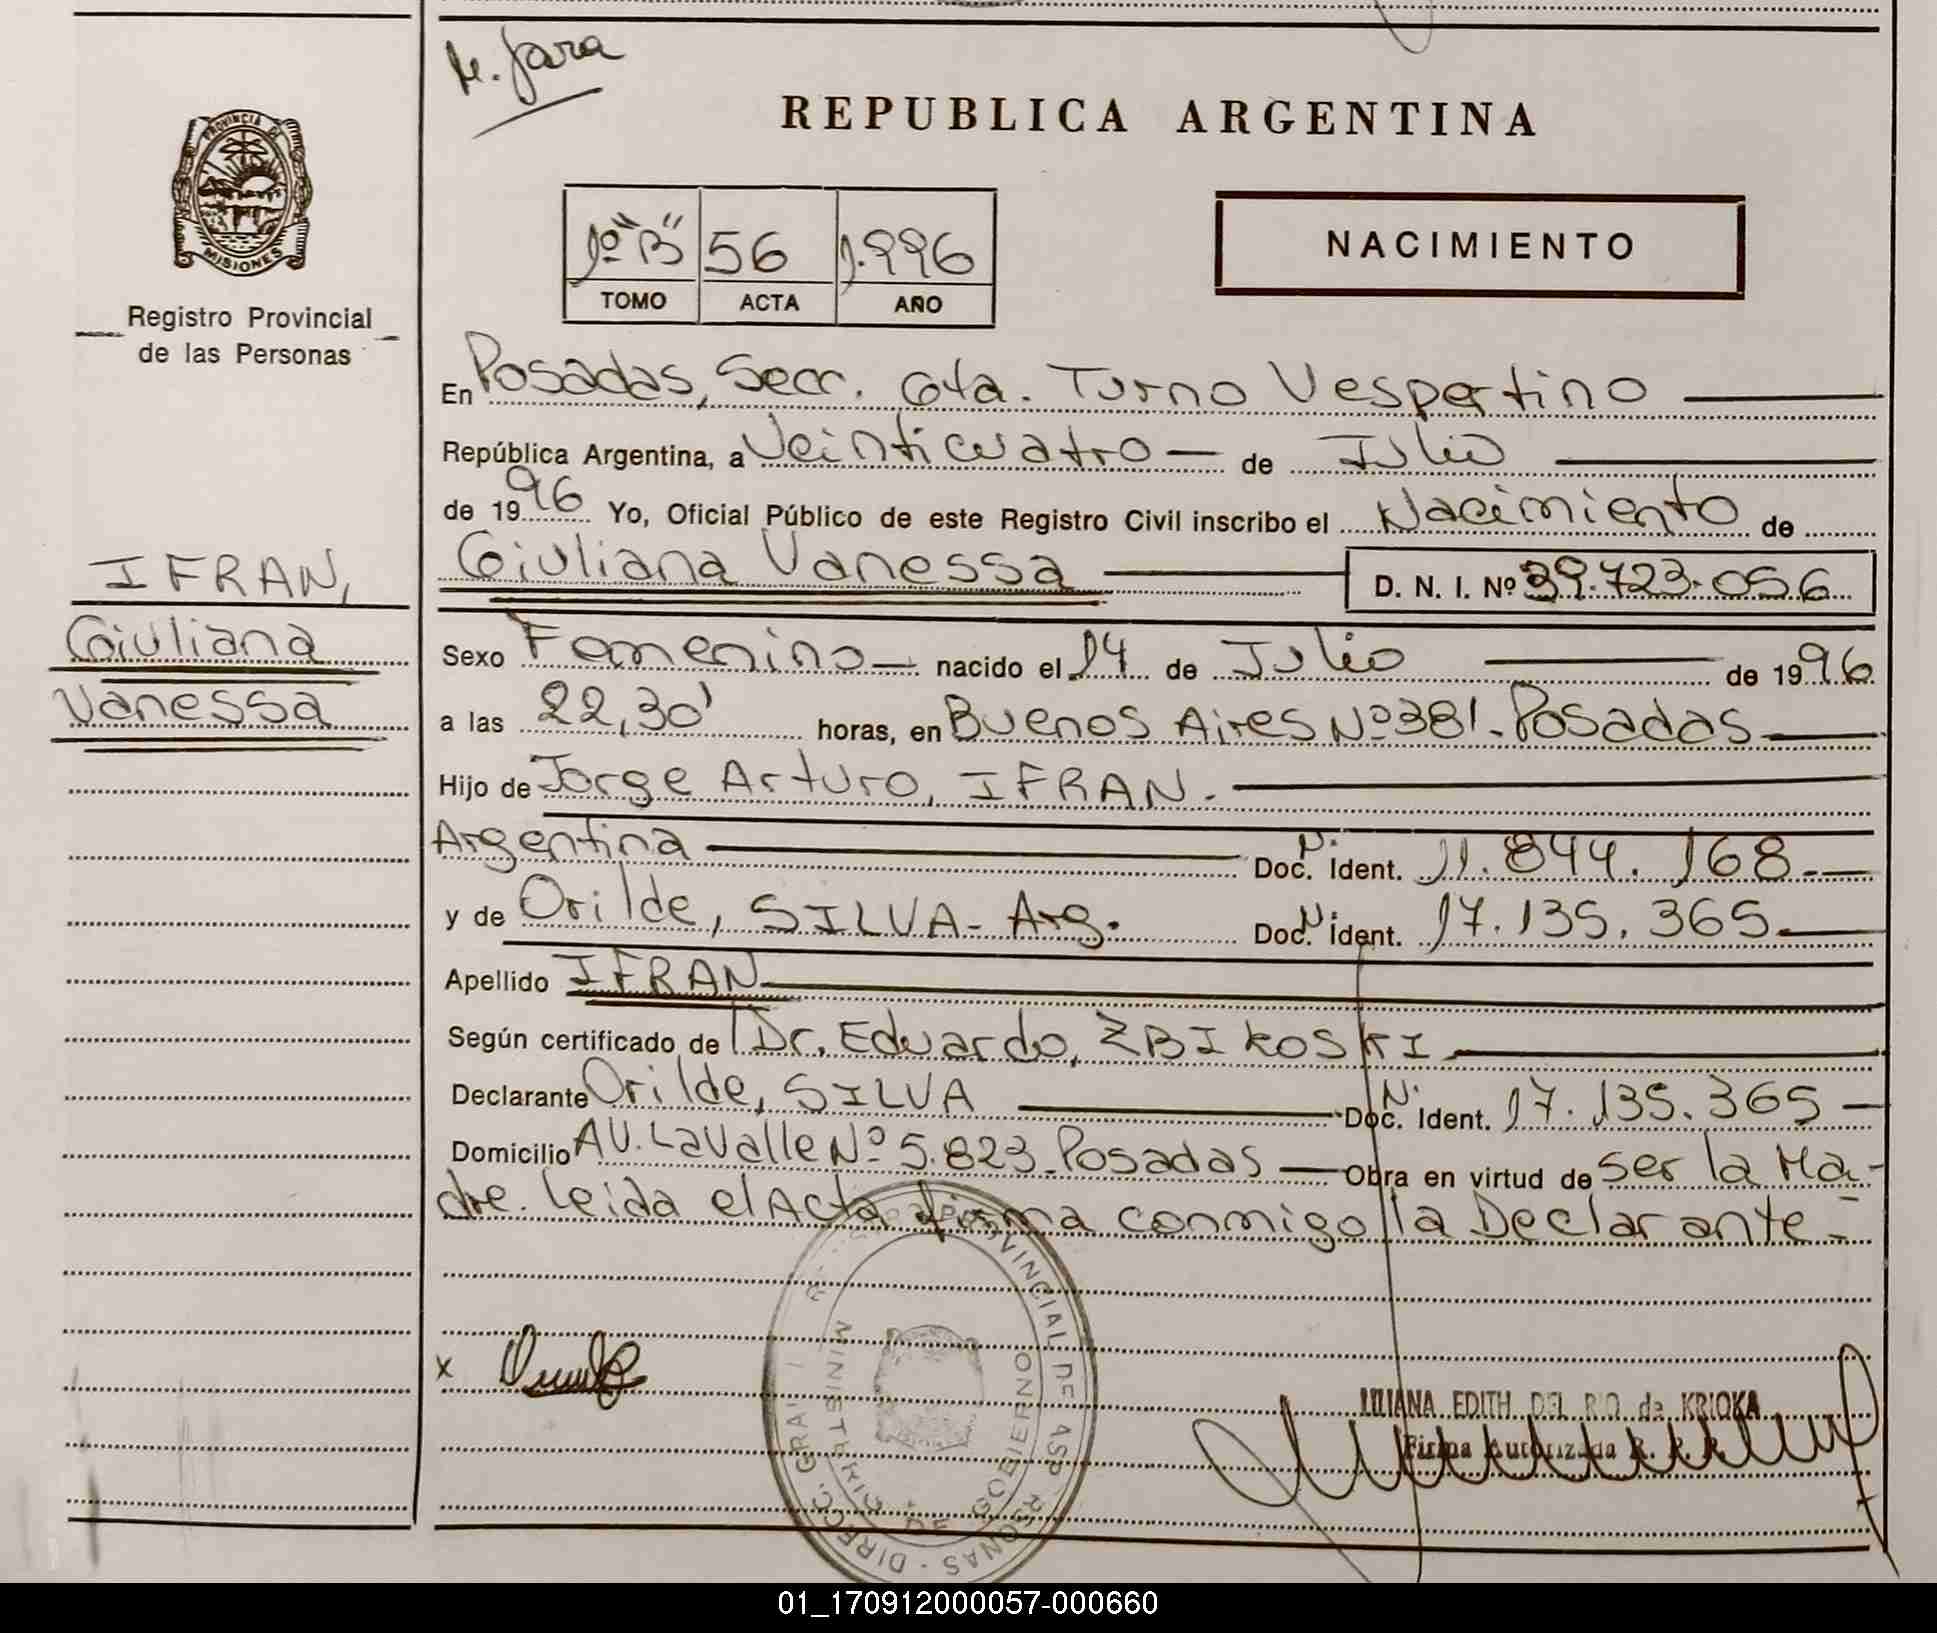 M. Jara
REPUBLICA ARGENTINA
PROVINCIA DE
MISIONES
Registro Provincial
de las Personas
1º "B" 56 1.996
TOMO ACTA AÑO
NACIMIENTO
En Posadas, Secc. 6ta. Turno Vespertino
República Argentina, a Veinticuatro de Julio
de 1996 Yo, Oficial Público de este Registro Civil inscribo el Nacimiento de
Giuliana Vanessa D. N. I. Nº 39.723.056
IFRAN,
Giuliana
Vanessa
Sexo Femenino nacido el 14 de Julio de 1996
a las 22,30' horas, en Buenos Aires Nº 381-Posadas
Hijo de Jorge Arturo, IFRAN.
Argentina Doc. N. Ident. 11.844.168.-
y de Orilde, SILVA- Arg. Doc. N. Ident. 17.135.365
Apellido IFRAN
Según certificado de Dr. Eduardo, ZBIKOSKI
Declarante Orilde, SILVA Doc. N. Ident. 17.135.365
Domicilio AV. Lavalle Nº 5.823-Posadas Obra en virtud de ser la Ma-
dre. leida el Acta firma conmigo la Declarante.-
x
PROVINCIAL DE
MINISTERIO DE GOBIERNO
DIRECC. GRAL
LILIANA EDITH DEL RIO de KRIOKA
Firma Autorizada R. P. P.
01_170912000057-000660